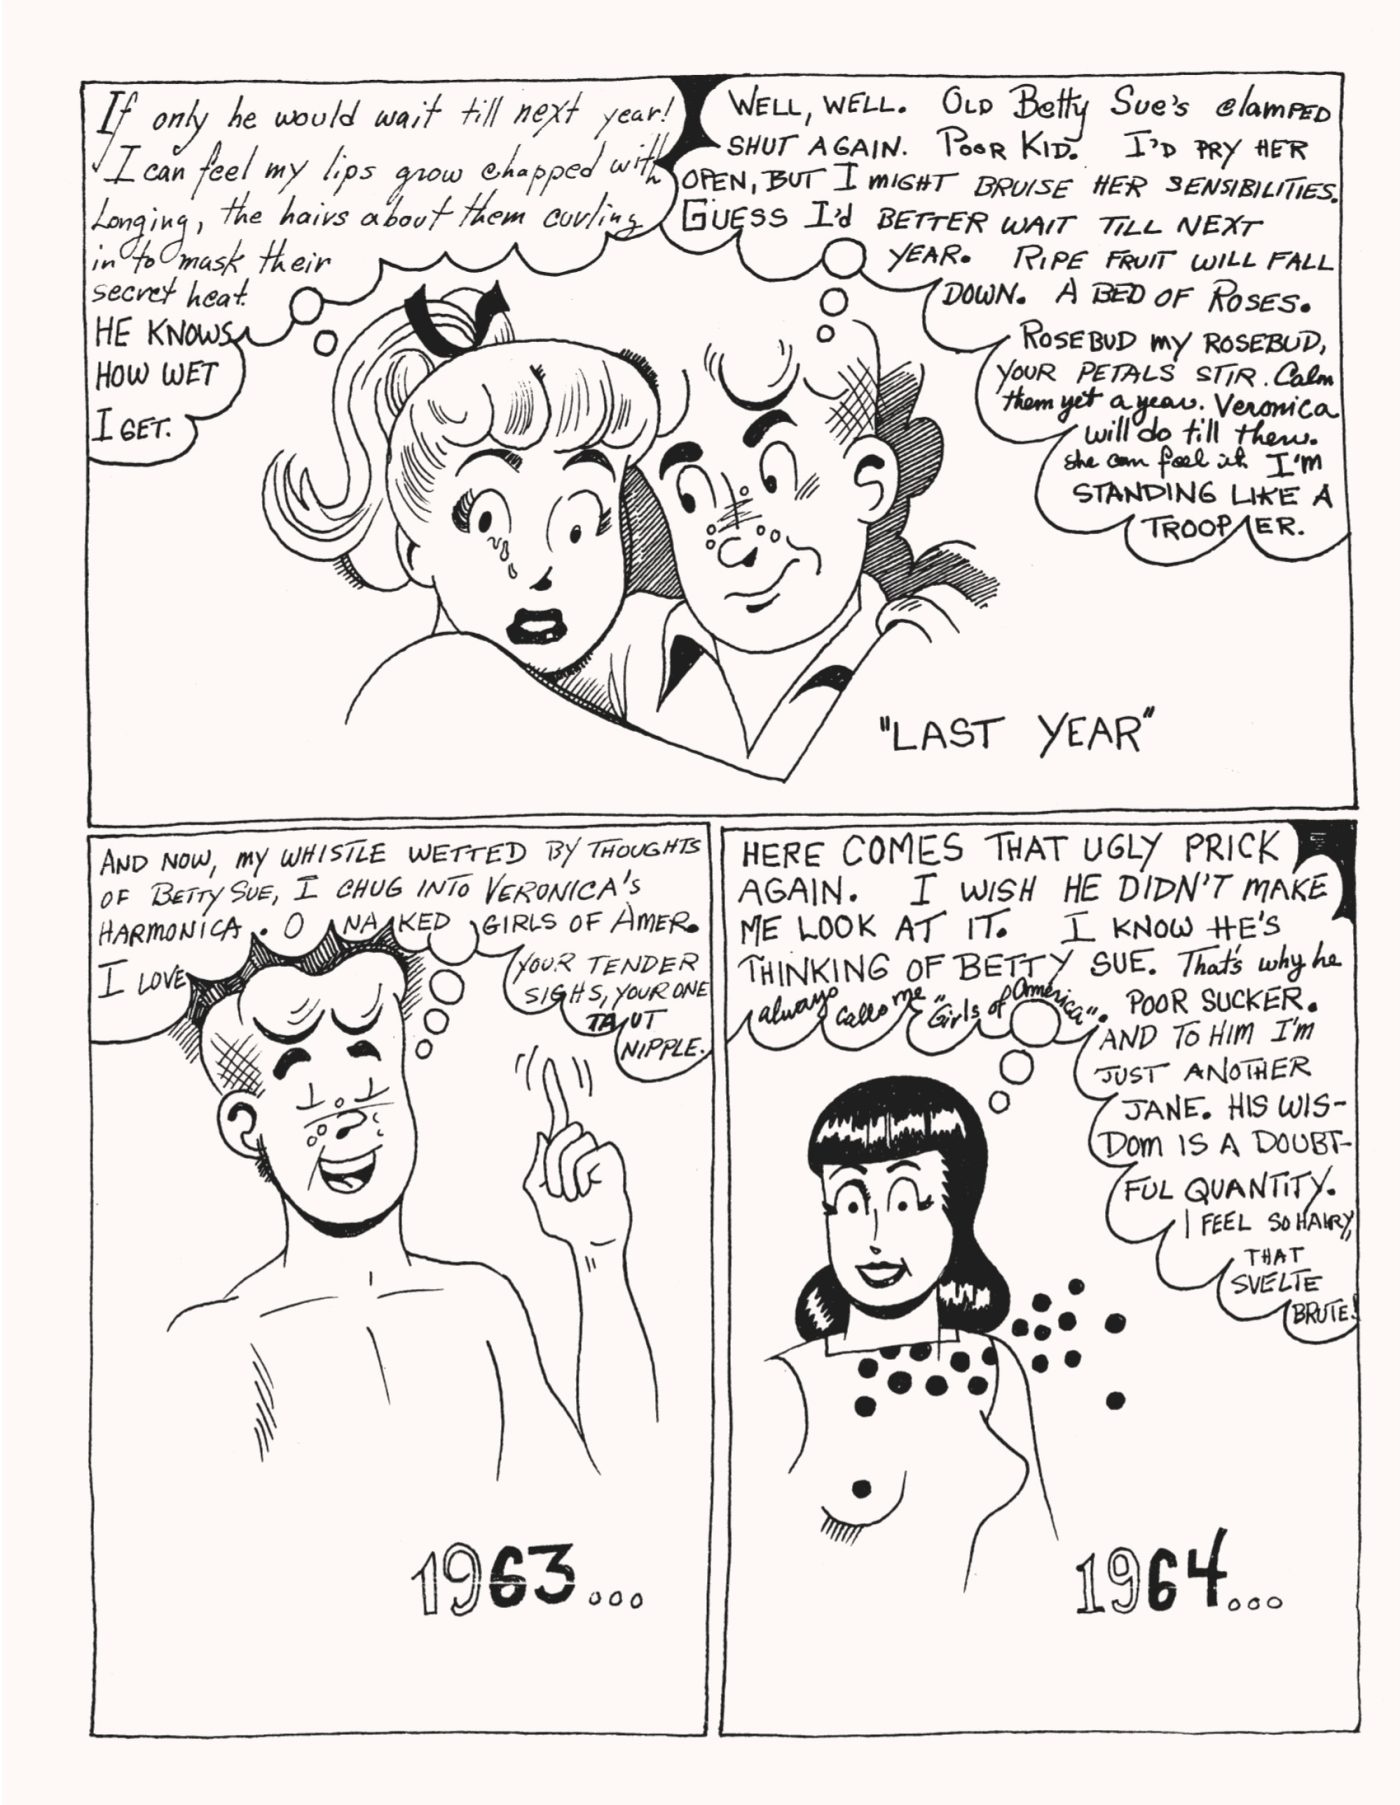 If only he would wait till next year!
I can feel my lips grow chapped with
Longing, the hairs about them curling
in to mask their
secret heat.
HE KNOWS
HOW WET
I GET.
WELL, WELL. OLD Betty Sue's clamped
SHUT AGAIN. POOR KID. I'D PRY HER
OPEN, BUT I MIGHT BRUISE HER SENSIBILITIES.
GUESS I'd BETTER WAIT TILL NEXT
YEAR. RIPE FRUIT WILL FALL
DOWN. A BED OF ROSES.
ROSEBUD MY ROSEBUD,
YOUR PETALS STIR. Calm
them yet a year. Veronica
will do till then.
She can feel it I'M
STANDING LIKE A
TROOPER.
"LAST YEAR"
AND NOW, MY WHISTLE WETTED BY THOUGHTS
OF BETTY SUE, I CHUG INTO VERONICA'S
HARMONICA. O NAKED GIRLS OF AMER.
I LOVE
YOUR TENDER
SIGHS, YOUR ONE
TAUT
NIPPLE.
1963...
HERE COMES THAT UGLY PRICK
AGAIN. I WISH HE DIDN'T MAKE
ME LOOK AT IT. I KNOW HE'S
THINKING OF BETTY SUE. That's why he
always calls me "Girls of America". POOR SUCKER.
AND TO HIM I'M
JUST ANOTHER
JANE. HIS WIS-
DOM IS A DOUBT-
FUL QUANTITY.
I FEEL SO HAIRY,
THAT
SVELTE
BRUTE!
1964...